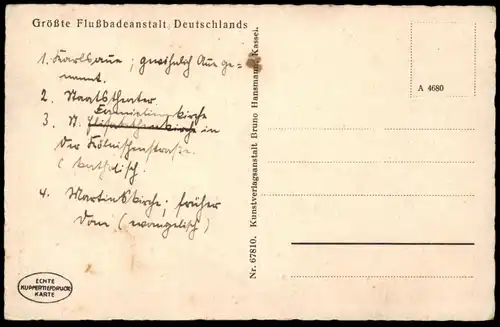 Größte Flußbadeanstalt Deutschlands
1. Karlsaue; gewöhnlich Aue ge-
nannt.
2. Staatstheater.
3. St. Elisabethenkirche in
der Kölnischenstrasse.
(katholisch.
4. Martinskirche; früher
Dom (evangelisch)
Nr. 67810. Kunstverlagsanstalt Bruno Hansmann, Kassel.
A 4680
ECHTE
KUPFERTIEFDRUCK
KARTE